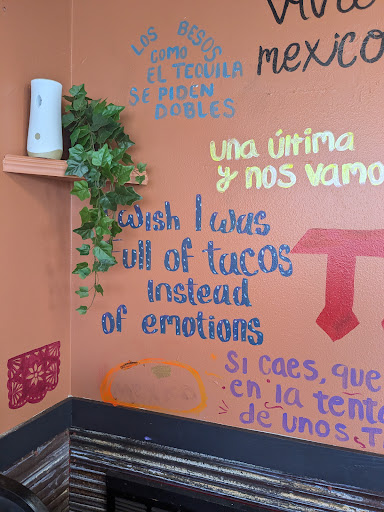 LOS BESOS
COMO
EL TEQUILA
SE PIDEN
DOBLES
mexico
una última
y nos vamo
wish I was
ull of tacos
instead
of emotions
Si caes, que
en la tenta
de unos T